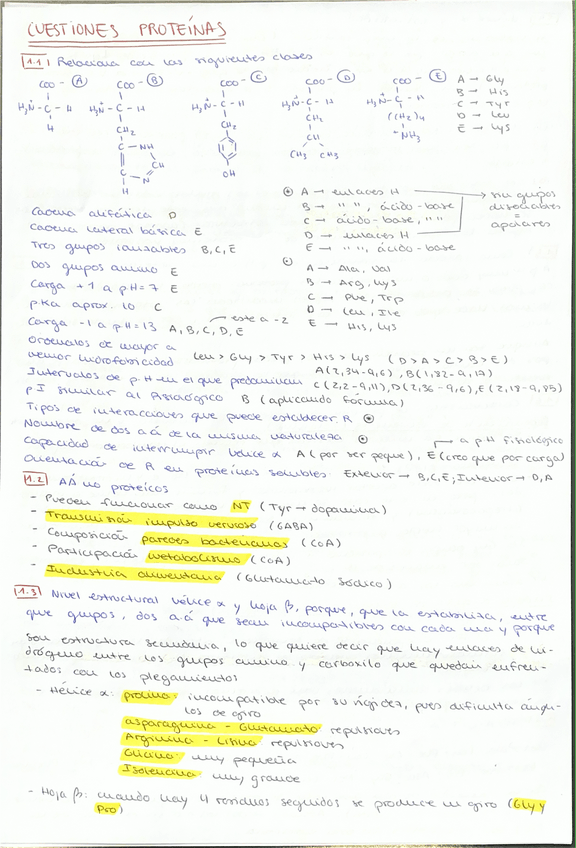 CUESTIONES PROTEÍNAS
1.1 Relaciona con las siguientes clases
COO- A COO- B COO- C COO- D COO- E
H3N+ - C - H H3N+ - C - H H3N+ - C - H H3N+ - C - H H3N+ - C - H
H CH2 CH2 CH2 (CH2)4
C - NH CH +NH3
CH CH3 CH3
C - N OH
H
A → Gly
B → His
C → Tyr
D → Leu
E → Lys
A → enlaces H
B → " ", ácido-base
C → ácido-base, " "
D → enlaces H
E → " ", ácido-base
sin grupos
disociables
=
apolares
A → Ala, Val
B → Arg, Lys
C → Phe, Trp
D → Leu, Ile
E → His, Lys
Cadena alifática D
Cadena lateral básica E
Tres grupos ionizables B, C, E
Dos grupos amino E
Carga +1 a pH=7 E
pKa aprox. 10 C
Carga -1 a pH=13 A, B, C, D, E → este a -2
Ordenalos de mayor a
menor hidrofobicidad Leu > Gly > Tyr > His > Lys (D>A>C>B>E)
Intervalos de pH en el que predominan A(2,34-9,6), B(1,82-9,17)
C(2,2-9,11), D(2,36-9,6), E(2,18-9,85)
pI similar al fisiológico B (aplicando fórmula)
Tipos de interacciones que puede establecer R
Nombre de dos aá de la misma naturaleza
a pH fisiológico
Capacidad de interrumpir hélice α A (por ser peque), E (creo que por carga)
Orientación de R en proteínas solubles. Exterior → B, C, E; Interior → D, A
1.2 AÁ no proteicos
- Pueden funcionar como NT (Tyr → dopamina)
- Transmisión impulso nervioso (GABA)
- Composición paredes bacterianas (CoA)
- Participación metabolismo (CoA)
- Industria alimentaria (Glutamato sódico)
1.3 Nivel estructural hélice α y hoja β, porque, que la estabiliza, entre
que grupos, dos aá que sean incompatibles con cada una y porque
Son estructura secundaria, lo que quiere decir que hay enlaces de hi-
drógeno entre los grupos amino y carboxilo que quedan enfren-
tados con los plegamientos
- Hélice α: prolina: incompatible por su rigidez, pues dificulta ángu-
los de giro
asparagina - Glutamato repulsiones
Arginina - Lisina repulsiones
Glicina muy pequeña
Isoleucina muy grande
- Hoja β: cuando hay 4 residuos seguidos se produce un giro (Gly y
Pro)